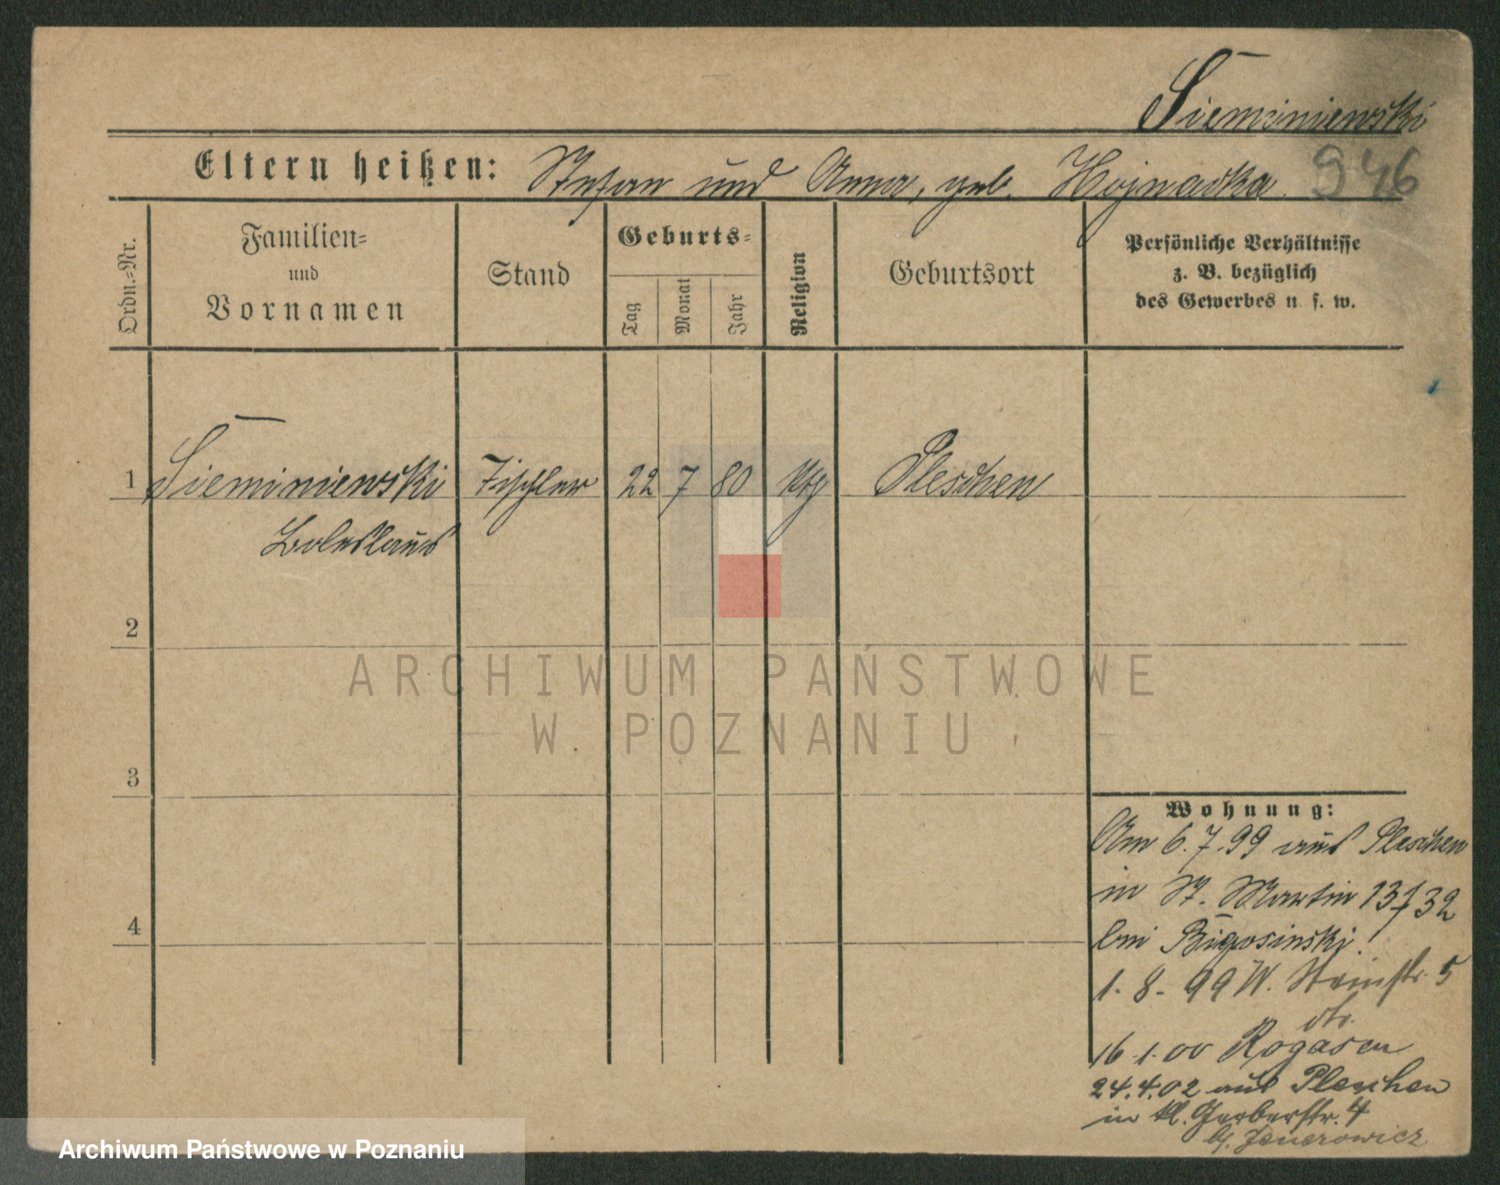 Sieminiewski
Eltern heißen: Stefan und Anna, geb. Hojnacka
946
Ordn.-Nr.
Familien-
und
Vornamen
Stand
Geburts-
Tag
Monat
Jahr
Religion
Geburtsort
Persönliche Verhältnisse
z. B. bezüglich
des Gewerbes u. s. w.
1 Sieminiewski Tischler 22 7 80 Pleschen
Boleslaus
2
3
4
Wohnung:
Am 6.7.99 aus Pleschen
in St. Martin 32
bei
1.8.99 W. 5
16.1.00 Rogasen
24.4.02 aus Pleschen
in kl. Gerberstr. 4
ARCHIWUM PAŃSTWOWE
W POZNANIU
Archiwum Państwowe w Poznaniu